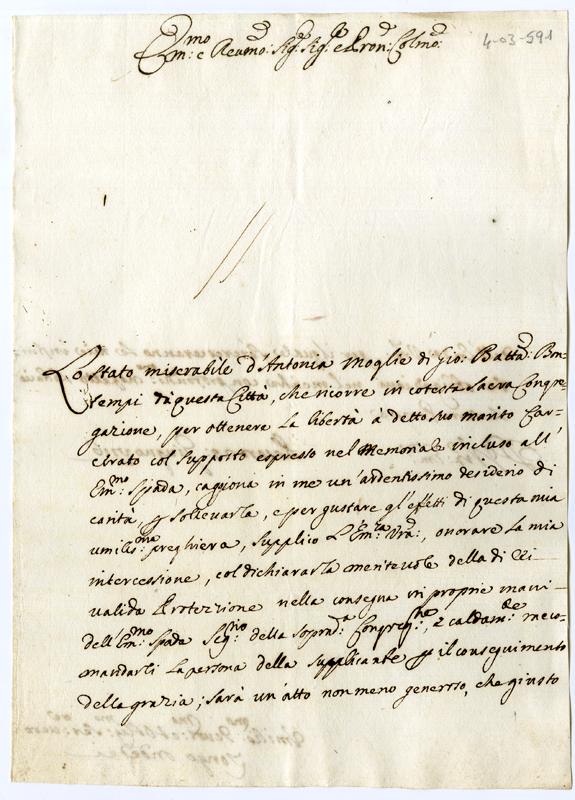 Em.mo e Revmo: Sig.r Sig.r e Pron: Colmo:
4-03-591
Lo stato miserabile d'Antonia moglie di Gio: Batta: Bon-
tempi di questa Città, che ricorre in cotesta Sacra Congre-
gazione, per ottenere la libertà à detto suo marito Car-
cerato col supposto espresso nel Memoriale incluso all'
Em.mo: Spada, cagiona in me un'ardentissimo desiderio di
carità, p sollevarla, e per gustare gl'effetti di questa mia
umilis.ma: preghiera, supplico l'Em.za: Vra:, onorare la mia
intercessione, col dichiararla meritevole della di Lei
valida Protezzione nella consegna in proprie mani
dell'Em.mo Spada Seg.rio della sopra.a: Congreg.ne:, e caldam.te: racco-
mandarli la persona della supplicante p il conseguimento
della grazia; sarà un'atto non meno generoso, che giusto